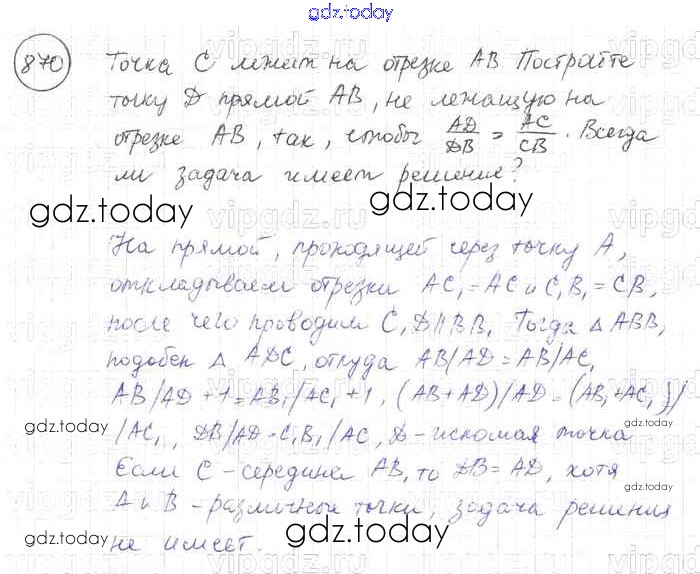 gdz.today
870 Точка C лежит на отрезке AB Постройте
точку D прямой AB, не лежащую на
отрезке AB, так, чтобы AD/DB = AC/CB. Всегда
ли задача имеет решение?
gdz.today gdz.today
На прямой, проходящей через точку A,
откладываем отрезки AC₁=AC и C₁B₁=CB,
после чего проводим C₁D||BB₁ Тогда △ ABB₁
подобен △ ADC, откуда AB/AD=AB/AC,
AB/AD+1=AB₁/AC₁+1, (AB+AD)/AD=(AB₁+AC₁)/
gdz.today gdz.today
/AC₁, DB/AD=C₁B₁/AC, D-искомая точка
Если C-середина AB, то DB=AD, хотя
gdz.today
A и B-различные точки, задача решения
gdz.today
gdz.today
не имеет.